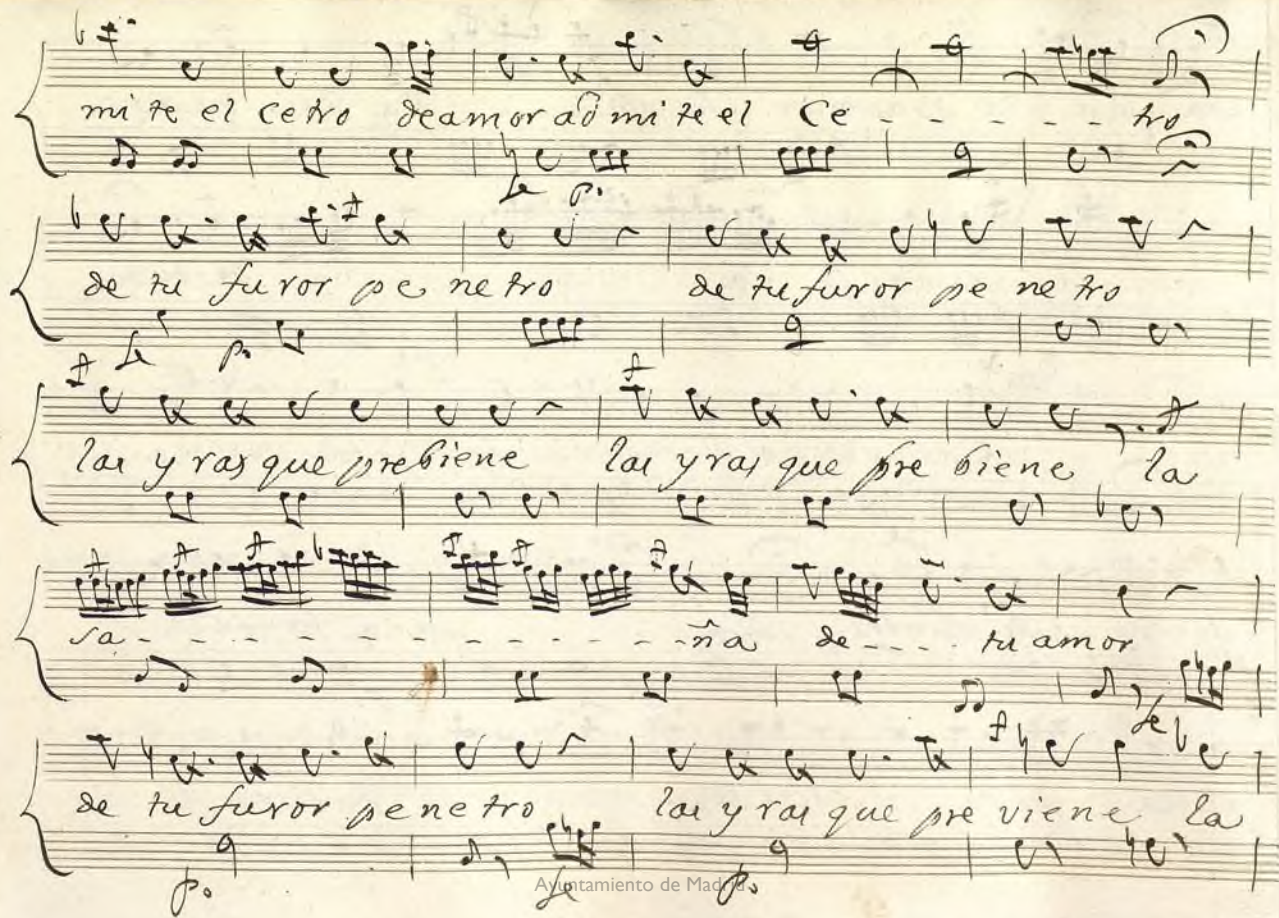 mi te el cetro de amor ad mi te el Ce - - - - - tro
fe p.o
de tu furor pe ne tro de tu furor pe ne tro
fe p.o
las y ras que prebiene las y ras que pre biene la
sa - - - - - - - - - - - ña de - - - - tu amor
fe
de tu furor pe ne tro las y ras que pre viene la
p.o fe p.o
Ayuntamiento de Madrid